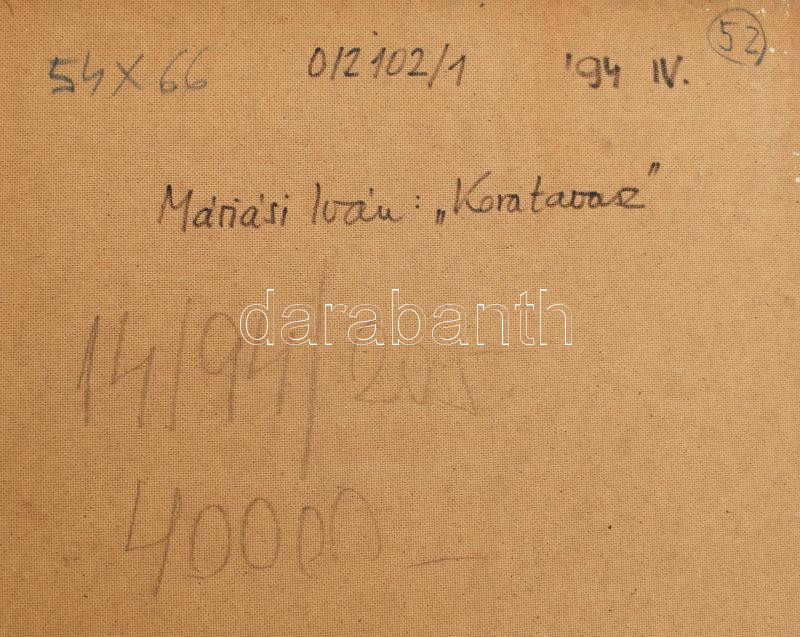 52
54 X 66 0/2102/1 '94 IV.
Máriási Iván: „Koratavasz"
darabanth
14/94/205
40000 —